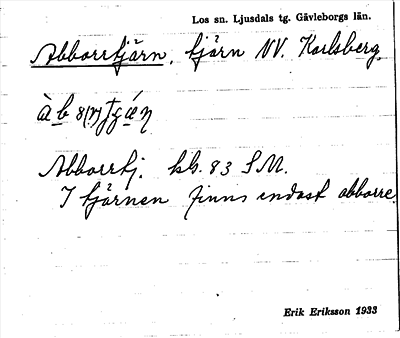 Los sn. Ljusdals tg. Gävleborgs län.
Abborrtjärn, tjärn NV. Karlsberg.
Abborrtj. kb. 83 SM.
I tjärnen finns endast abborre.
Erik Eriksson 1933